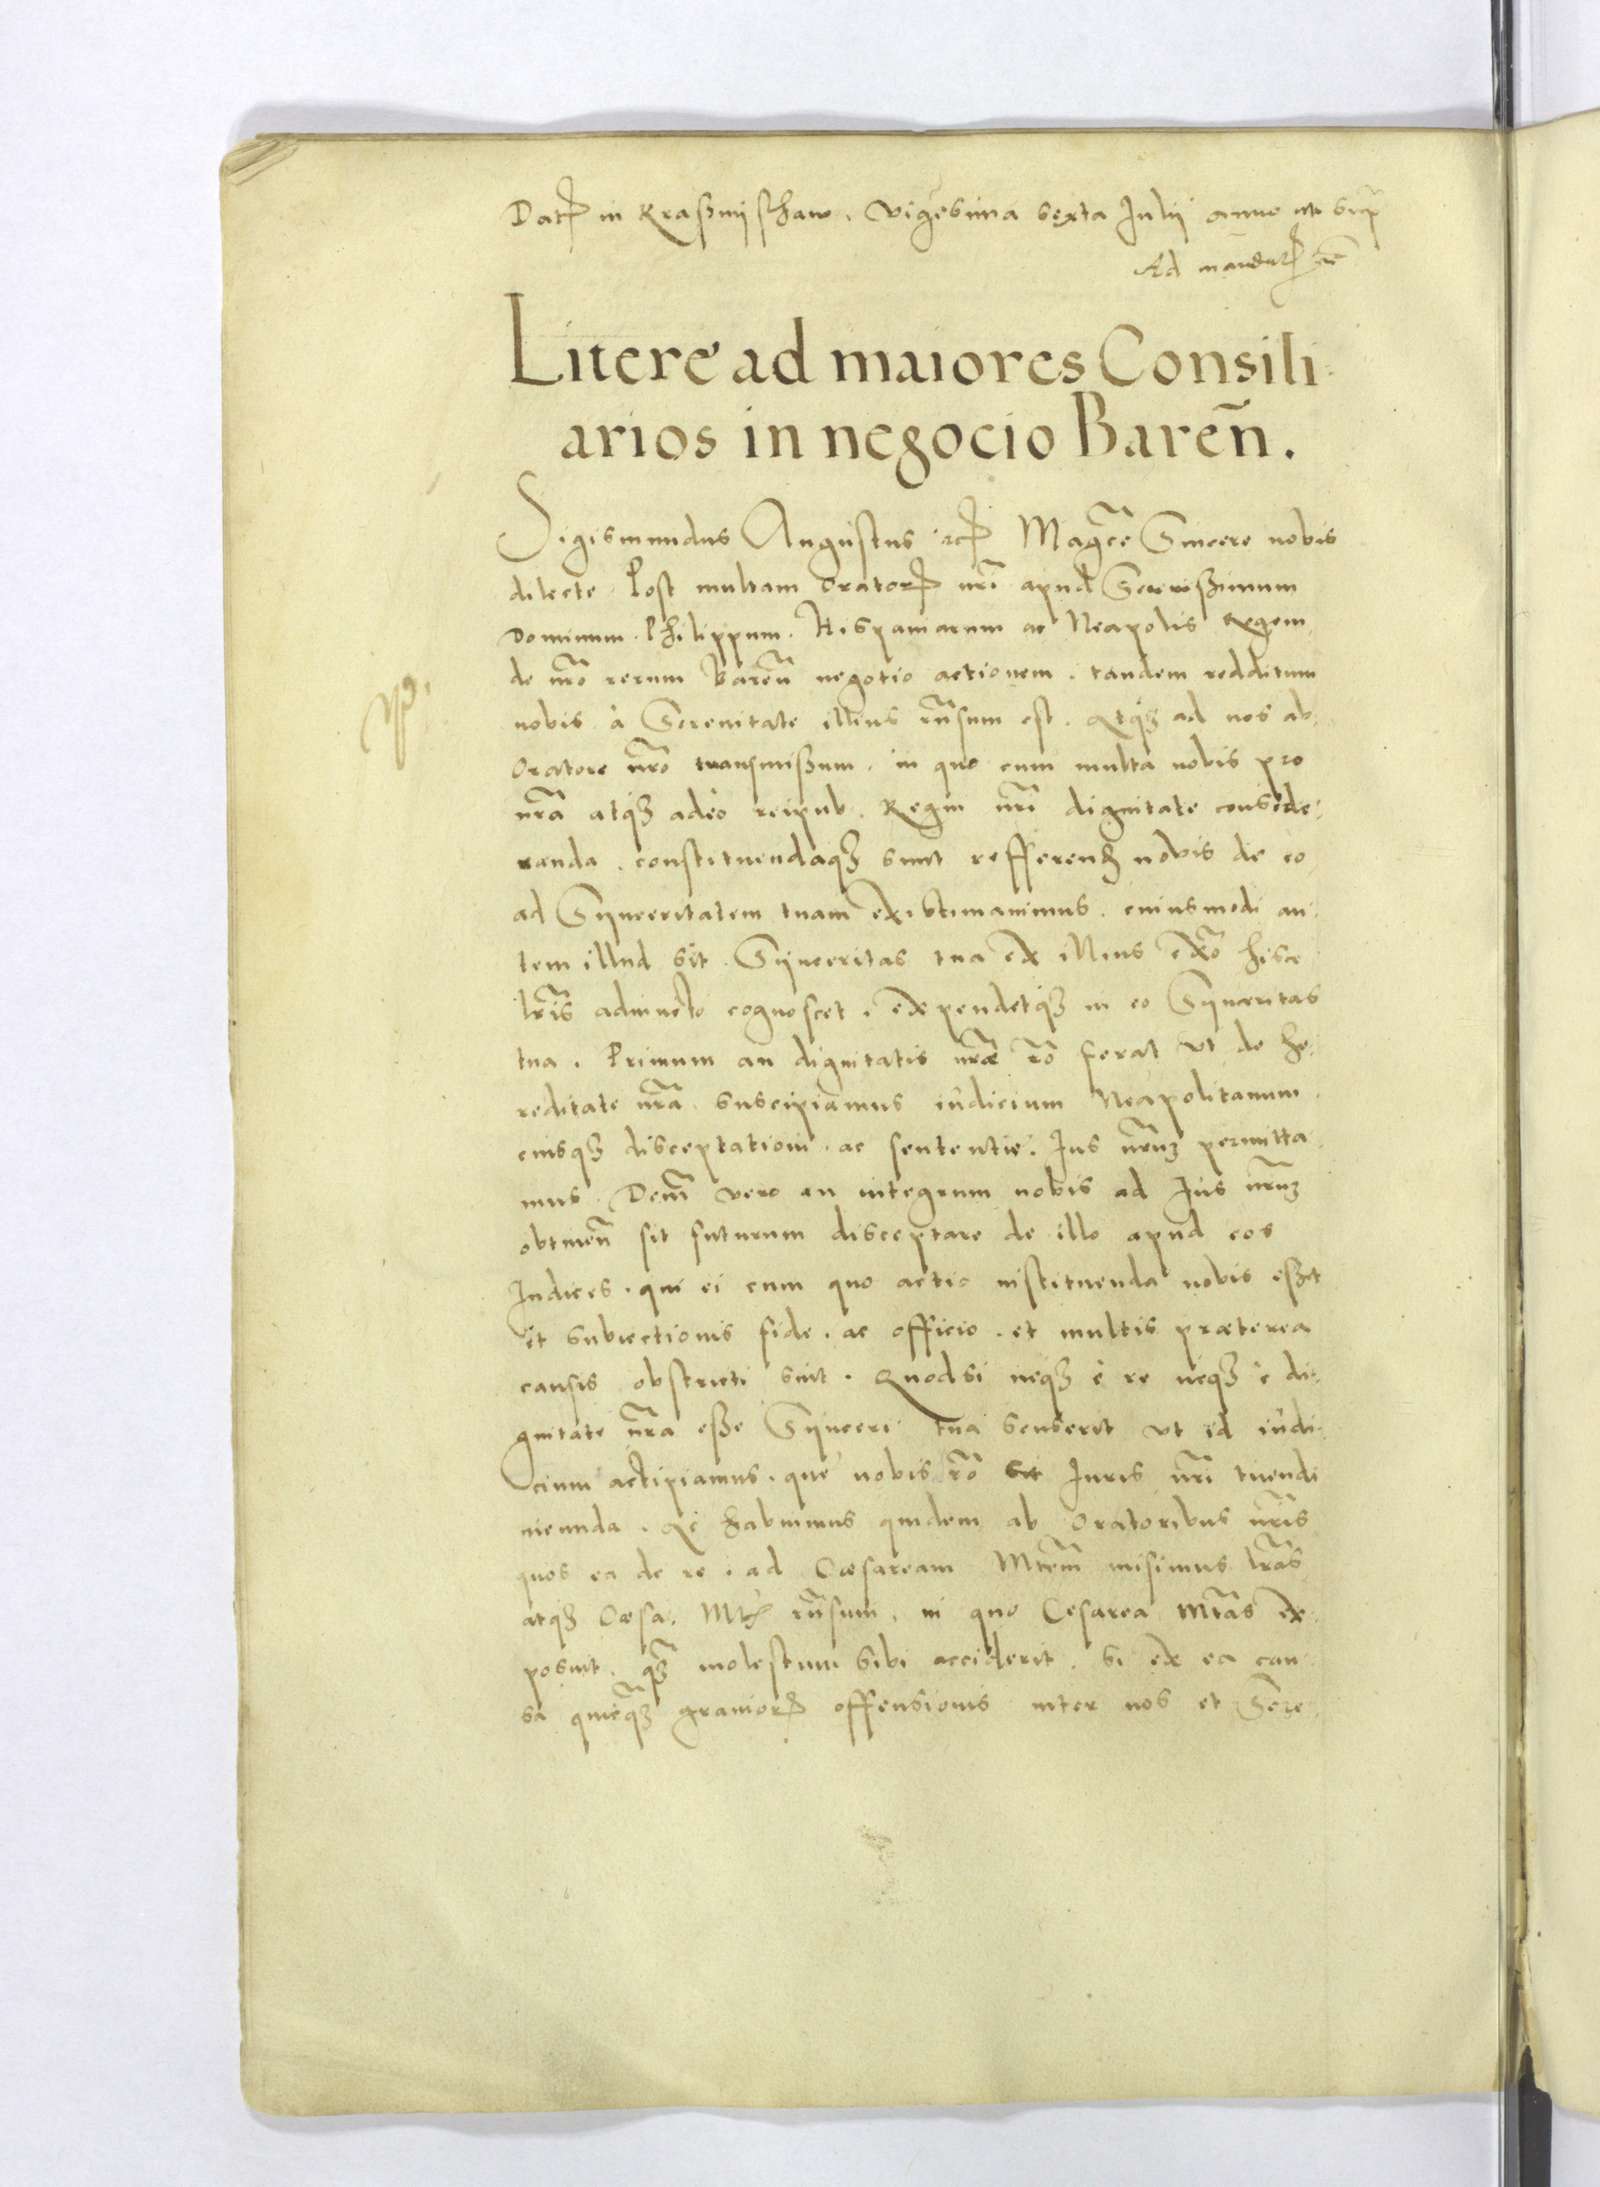 Dat in Kraßnijschaw. vigesima sexta Julij anno ut sup
Ad mandat
Litere ad maiores Consili
arios in negocio Bareñ.
Sigismundus Augustus etc Magce Sincere nobis
dilecte. Post multam orator nri apud Serenißimum
Dominum. Philippum. Hispaniarum ac Neapolis Regem
de nro rerum Bareñ negotio actionem. tandem redditum
nobis à Serenitate illius rñsum est. Atq3 ad nos ab
Oratore nro transmißum. in quo cum multa nobis pro
nra atq3 adeò reipub. Regni nri dignitate conside-
randa. constituendaq3 sunt refferend nobis de eo
ad Synceritatem tuam existimavimus. cuiusmodi au-
tem illud sit. Synceritas tua ex illius exo hisce
lris adiuncto cognoscet. expendetq3 in eo Synceritas
tua. Primum an dignitatis nræ ro ferat ut de he-
reditate nra suscipiamus iudicium Neapolitanum
eiusq3 disceptationi. ac sententie. Ius nrum permitta-
mus. Dein vero an integrum nobis ad Ius nrum
obtineñ sit futurum disceptare de illo apud eos
Iudices. qui ei cum quo actio instituenda nobis eßet
et subiectionis fide. ac officio. et multis præterea
causis obstricti sint. Quodsi neq3 è re neq3 è di-
gnitate nra eße Synceri tua senserit ut id iudi-
cium accipiamus. que nobis ro sit Iuris nri tuendi
ineunda. Ac habuimus quidem ab Oratoribus nris
quos ea de re. ad Cæsaream Mtem misimus lras
atq3 Cæsa. Mt rñsum. in quo Cesarea Mtas ex-
posuit. q3 molestum sibi acciderit. si ex ea cau-
sa quicq3 grauior offensionis inter nos et Sere